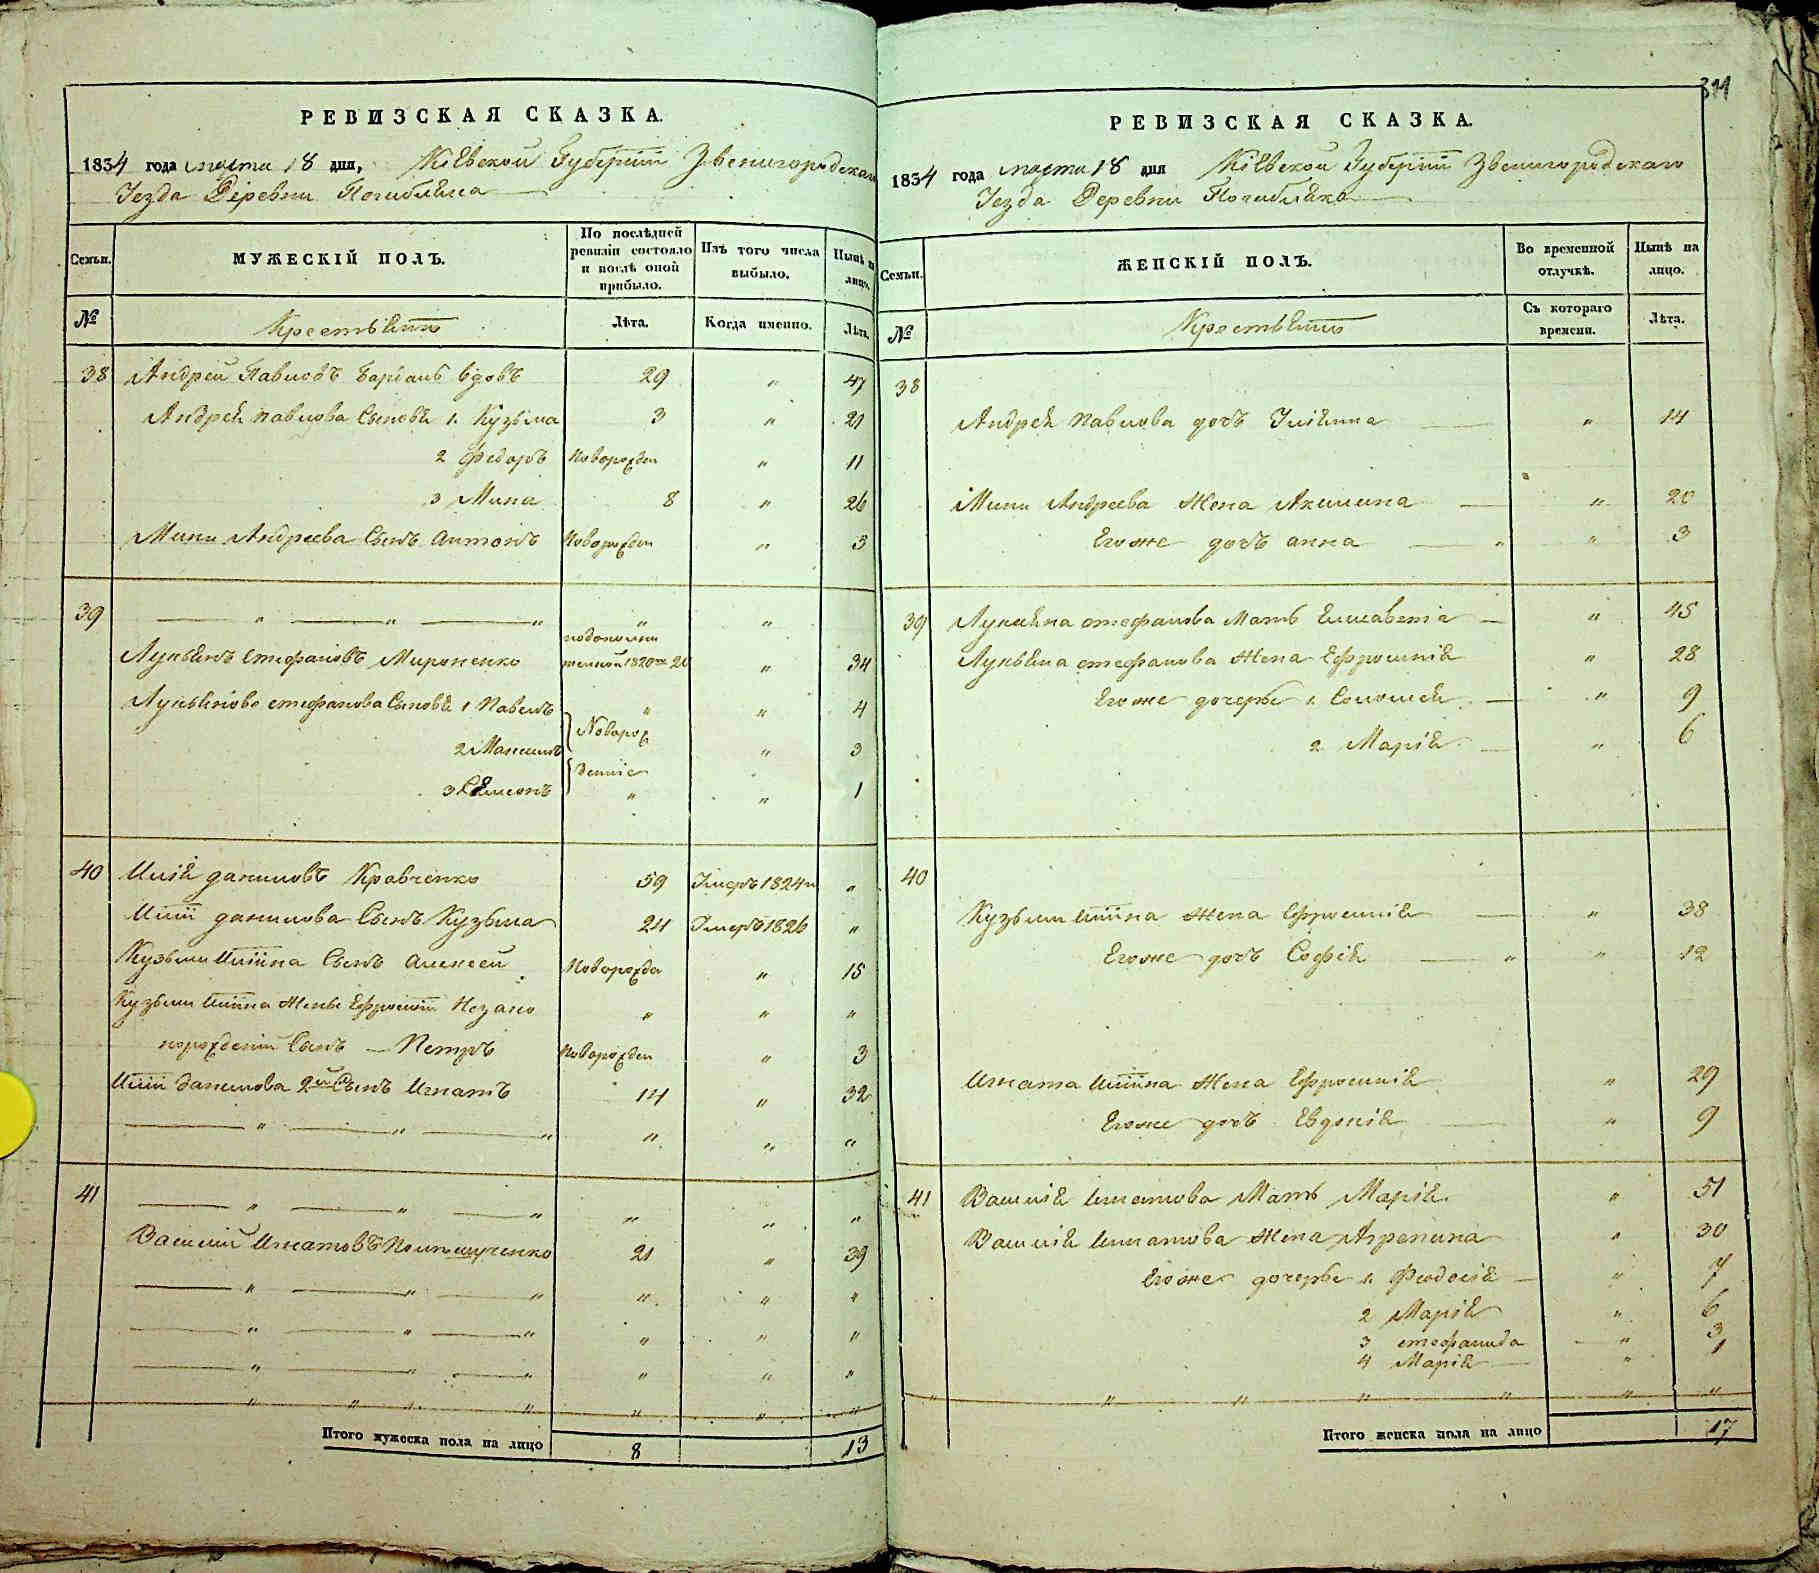 РЕВИЗСКАЯ СКАЗКА.
1834 года марта 18 дня, Кіевской Губерніи Звенигородскаго
Уезда Деревни Погибляка
Семьи.
МУЖЕСКІЙ ПОЛЪ.
По послѣдней ревизіи состояло и послѣ оной прибыло.
Изъ того числа выбыло.
Нынѣ на лицо.
№
Крестьяне
Лѣта.
Когда именно.
Лѣта.
38 Андрей Павловъ вдовъ 29 " 47
Андрея Павлова Сыновя 1. Кузьма 3 " 21
2 Федоръ Новорожден " 11
3 Мина 8 " 26
Мины Андреева Сынъ Антонъ Новорожден " 3
39 " " " " "
Лукьянъ Стефановъ Мироненко 1820 20 " 34
Лукьянова стефанова Сыновя 1 Павелъ " " 4
2 Максимъ Новорож " 3
3 Семенъ денніе " " 1
40 Илія даниловъ Кравченко 59 Умеръ 1824 "
Иліи данилова Сынъ Кузьма 24 Умеръ 1826 "
Кузьмы Иліина Сынъ Алексей Новорожде " 15
Кузьмы Иліина Жены Ефросиніи Незако
норожденій Сынъ — Петръ Новорожден " 3
Иліи данилова 2й Сынъ Игнатъ 14 " 32
" " " " " "
41 " " " " " "
Василий Игнатовъ 21 " 39
" " " " " "
" " " " " "
" " " " " "
" " " " " " "
Итого мужеска пола на лицо 8 13
311
РЕВИЗСКАЯ СКАЗКА.
1834 года марта 18 дня Кіевской Губерніи Звенигородскаго
Уезда Деревни Погибляка
Семьи.
ЖЕНСКІЙ ПОЛЪ.
Во временной отлучкѣ.
Нынѣ на лицо.
№
Крестьяне
Съ котораго времени.
Лѣта.
38
Андрея Павлова дочъ Уліянна " 14
Мины Андреева Жена Акилина " 20
Егоже дочъ анна " " 3
39 Лукьяна стефанова Мать Елисавета " 45
Лукьяна стефанова Жена Ефросинія " 28
Егоже дочеры 1. Соломея " 9
2 Марія " 6
40
Кузьмы Иліина Жена Ефросинія " 38
Егоже дочъ Софія " " 12
Игната Иліина Жена Ефросинія " 29
Егоже дочъ Евдокія " 9
41 Василія Игнатова Мать Марія " 51
Василія Игнатова Жена Агрепина " 30
Егоже дочеры 1. Феодосія " 7
2 Марія " 6
3 стефанида " 3
4 Марія " 1
" " " " " " "
Итого женска пола на лицо 17